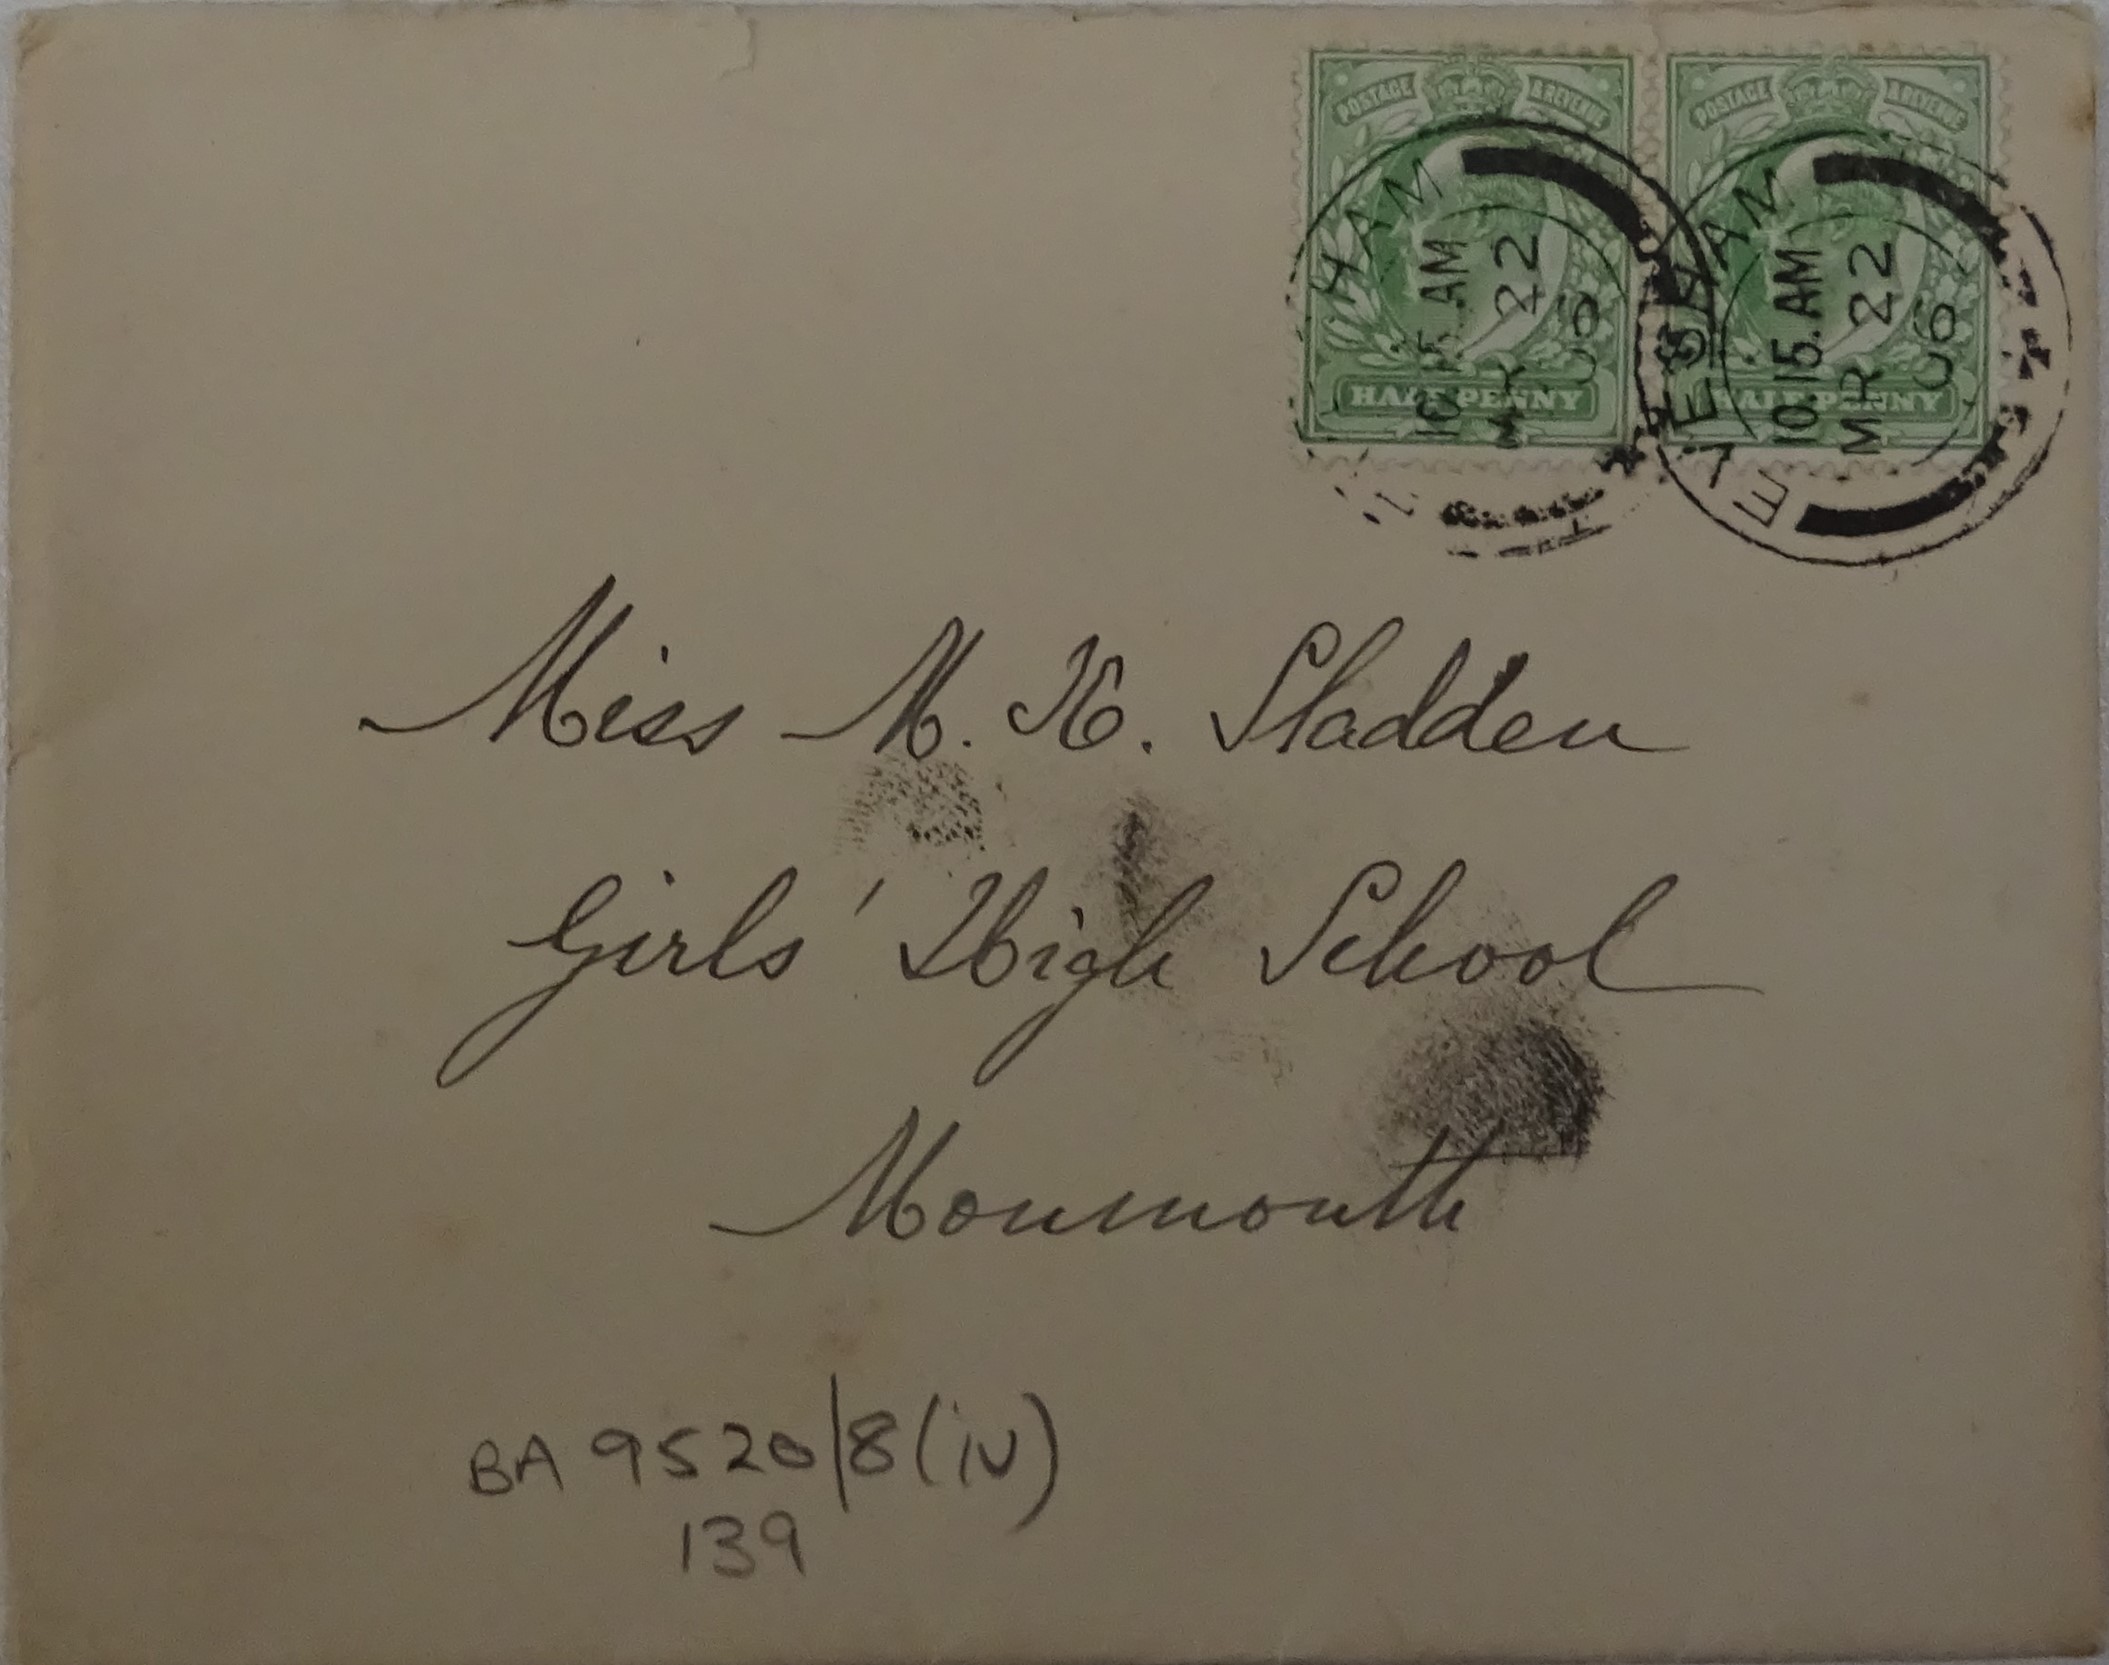 POSTAGE & REVENUE POSTAGE & REVENUE
HALF PENNY HALF PENNY
HAM
10.15.AM
MR 22
06
EVESHAM
10.15.AM
MR 22
06
Miss M. K. Sladden
Girls' High School
Monmouth
BA 9520/8(iv)
139